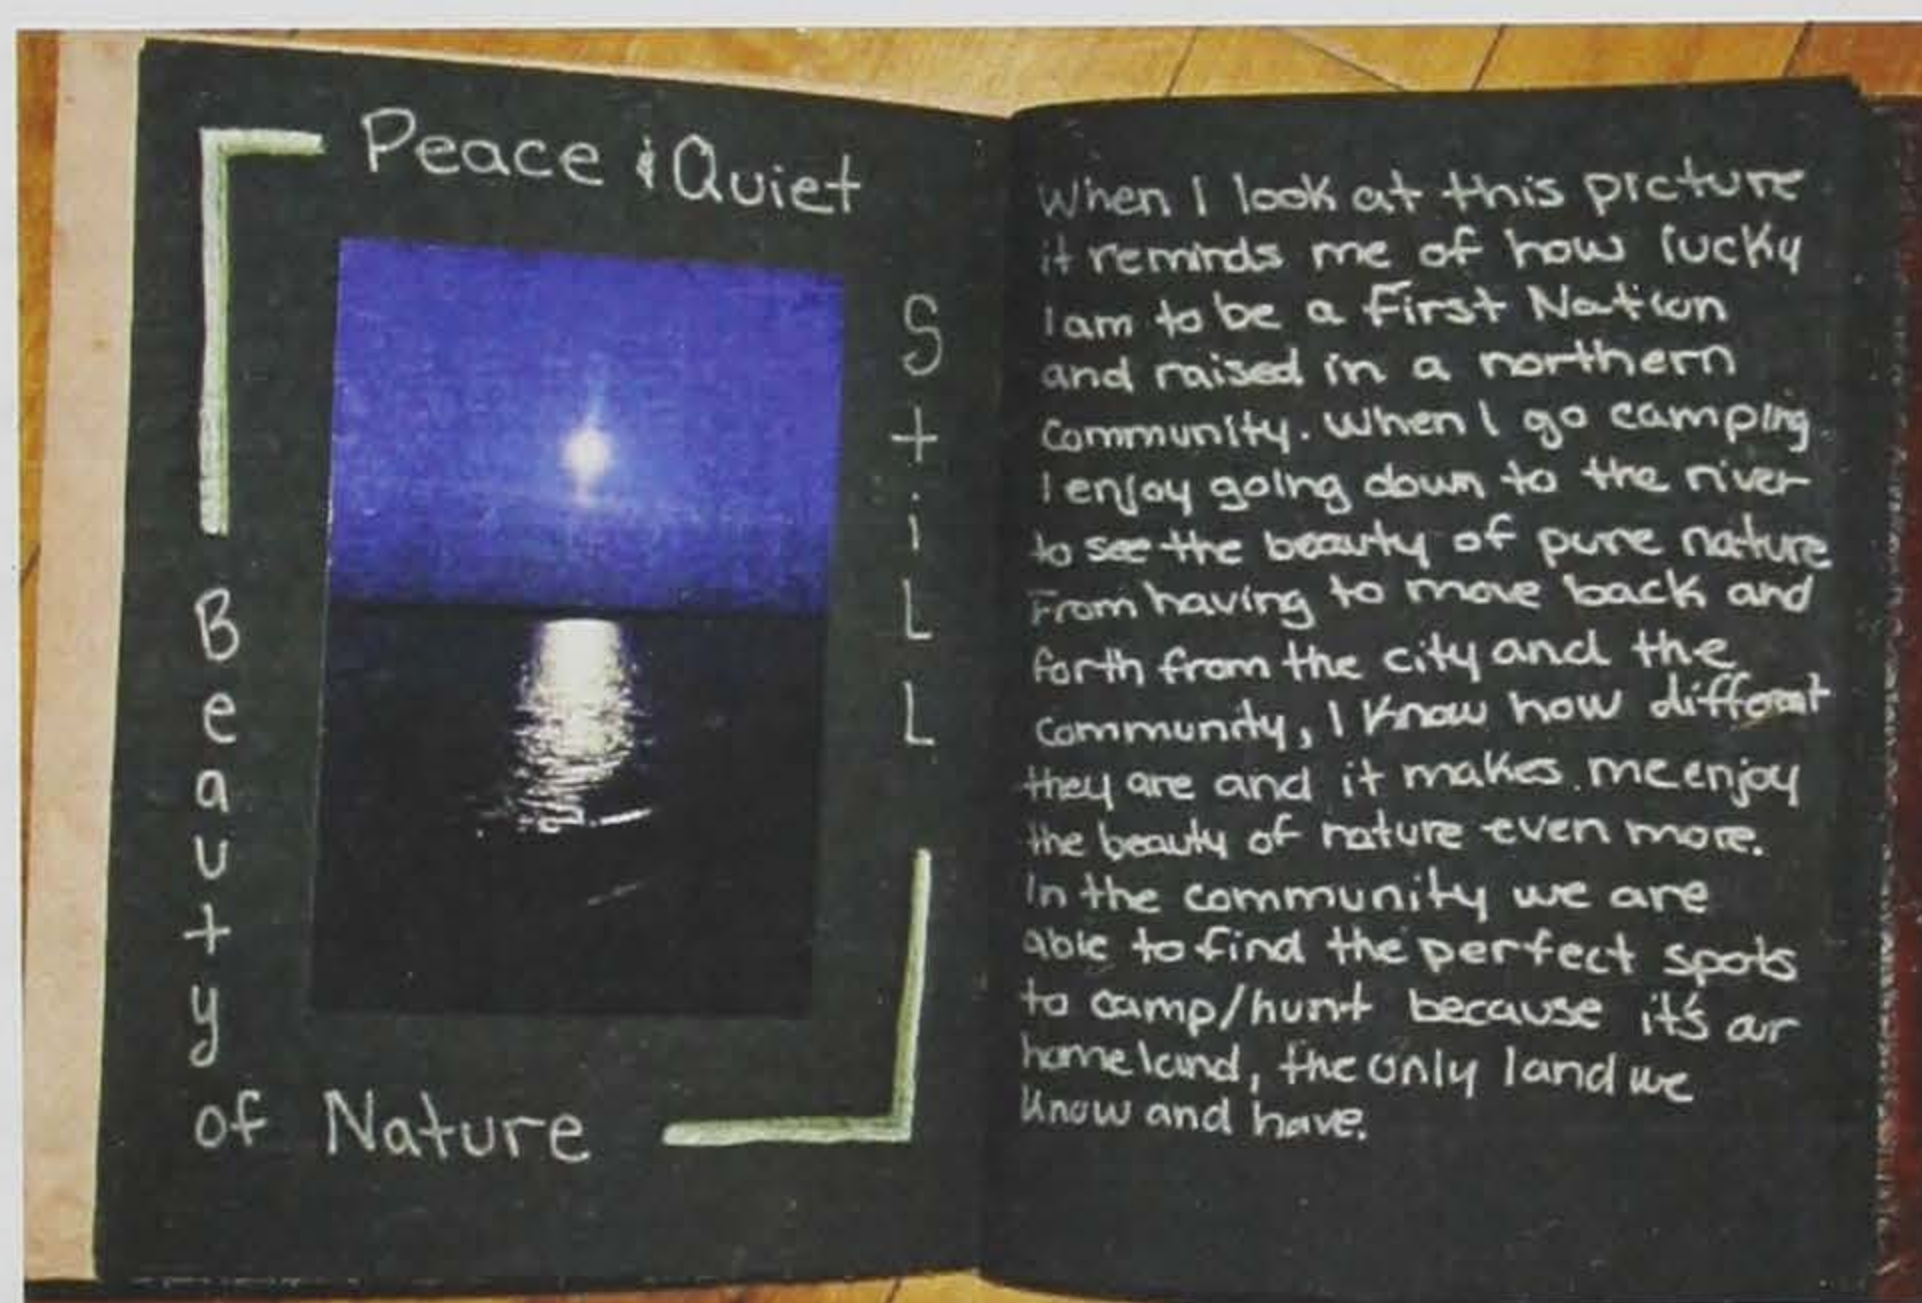 Peace & Quiet
StiLL
Beauty
of Nature
When I look at this picture
it reminds me of how lucky
I am to be a First Nation
and raised in a northern
community. When I go camping
I enjoy going down to the river
to see the beauty of pure nature
From having to move back and
forth from the city and the
community, I know how different
they are and it makes me enjoy
the beauty of nature even more.
In the community we are
able to find the perfect spots
to camp/hunt because it's our
homeland, the only land we
know and have.